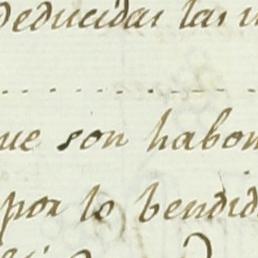 deducidas las
ue son habon
por lo bendid